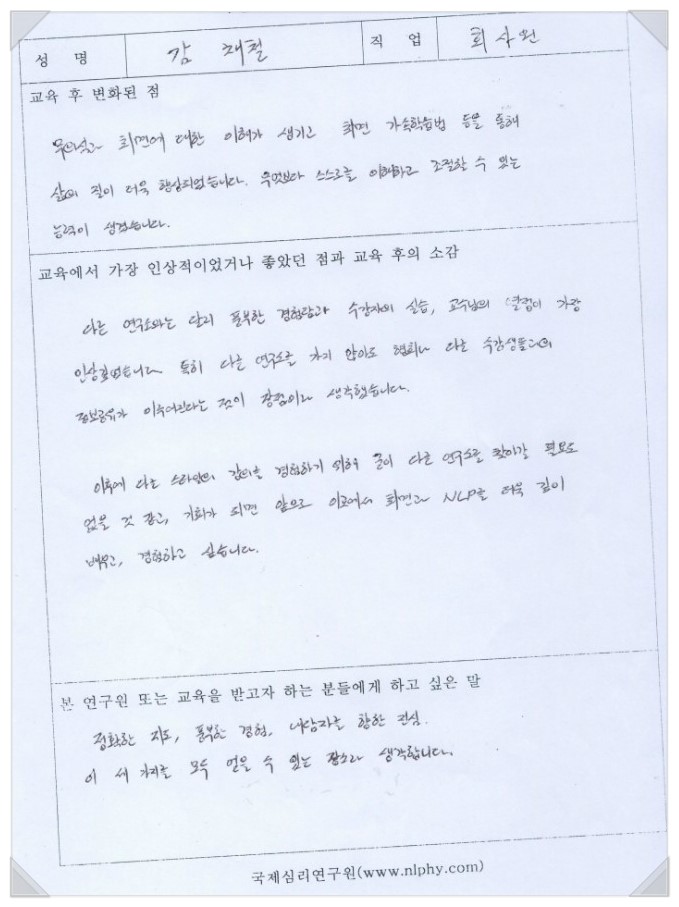 성 명 김 재철 직 업 회사원
교육 후 변화된 점
무의식과 최면에 대한 이해가 생기고 최면 가속학습법 등을 통해
삶의 질이 더욱 향상되었습니다. 무엇보다 스스로를 이해하고 조절할 수 있는
능력이 생겼습니다.
교육에서 가장 인상적이었거나 좋았던 점과 교육 후의 소감
다른 연구소와는 달리 풍부한 경험담과 수강자의 실습, 교수님의 가장
인상깊었습니다. 특히 다른 연구소를 가지 않아도 협회나 다른 수강생들과의
정보공유가 이루어진다는 것이 장점이라 생각했습니다.
이후에 다른 스타일의 강의를 경험하기 위해 굳이 다른 연구소를 찾아갈 필요도
없을 것 같고, 기회가 되면 앞으로 이곳에서 최면과 NLP를 더욱 깊이
배우고, 경험하고 싶습니다.
본 연구원 또는 교육을 받고자 하는 분들에게 하고 싶은 말
정확한 지도, 풍부한 경험, 내담자를 향한 관심.
이 세 가지를 모두 얻을 수 있는 장소라 생각합니다.
국제심리연구원(www.nlphy.com)